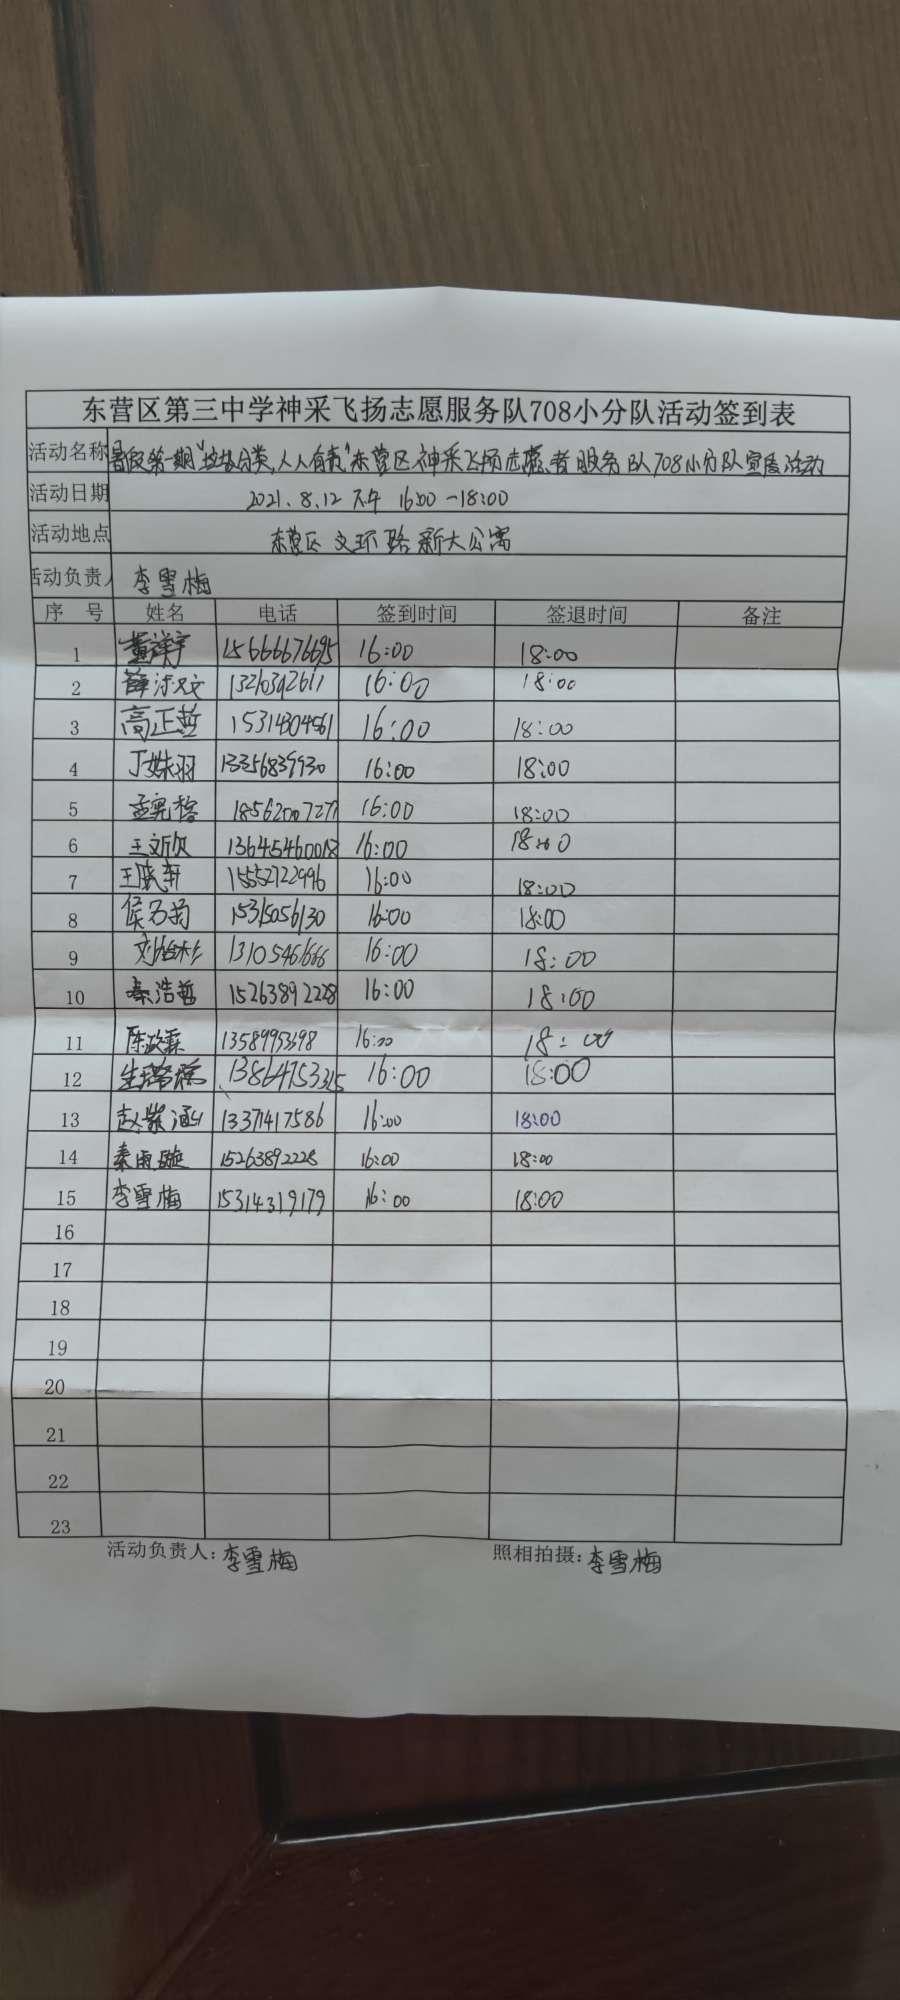 东营区第三中学神采飞扬志愿服务队708小分队活动签到表
活动名称 暑假第一期"垃圾分类,人人有责"东营区神采飞扬志愿者服务队708小分队宣传活动
活动日期 2021.8.12 下午 16:00-18:00
活动地点 东营区文环路新大公寓
活动负责人 李雪梅
序号 姓名 电话 签到时间 签退时间 备注
1 董祥宇 15666676695 16:00 18:00
2 薛 13210392611 16:00 18:00
3 高正哲 15314304561 16:00 18:00
4 丁姝羽 13356839930 16:00 18:00
5 孟宪榕 18562007277 16:00 18:00
6 王文欣 13645460018 16:00 18:00
7 王晓轩 15552722996 16:00 18:00
8 侯名 15315056130 16:00 18:00
9 刘怡杉 13105461666 16:00 18:00
10 秦浩哲 15263892228 16:00 18:00
11 陈政霖 13589953698 16:00 18:00
12 生 13864753325 16:00 18:00
13 赵紫涵 13371417586 16:00 18:00
14 秦雨璇 15263892228 16:00 18:00
15 李雪梅 15314319179 16:00 18:00
16
17
18
19
20
21
22
23
活动负责人:李雪梅 照相拍摄:李雪梅